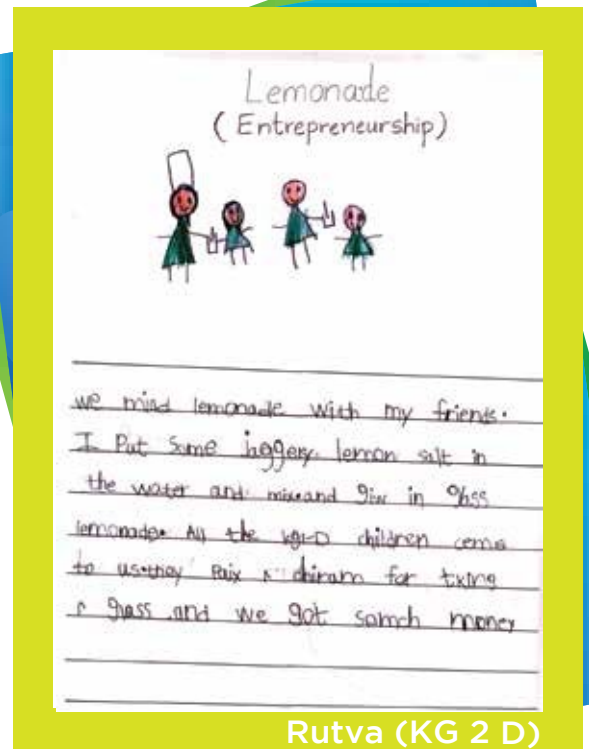 Lemonade
(Entrepreneurship)
we mind lemonade with my friends.
I Put Some jaggery lemon salt in
the water and mixeand give in
lemonade. All the children came
to us. they for
and we got somch money
Rutva (KG 2 D)